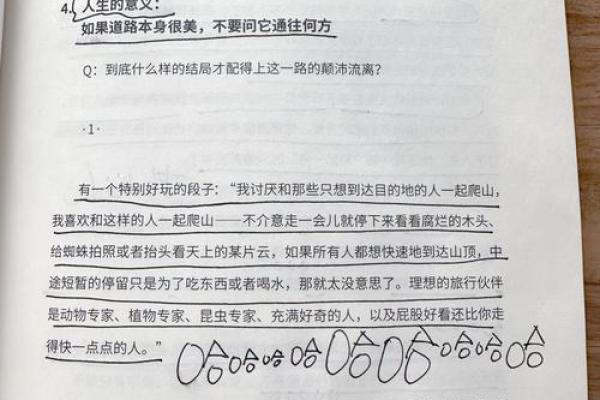 4. 人生的意义：
如果道路本身很美，不要问它通往何方
Q：到底什么样的结局才配得上这一路的颠沛流离？
·1·
有一个特别好玩的段子：“我讨厌和那些只想到达目的地的人一起爬山，
我喜欢和这样的人一起爬山——不介意走一会儿就停下来看看腐烂的木头、
给蜘蛛拍照或者抬头看天上的某片云，如果所有人都想快速地到达山顶，中
途短暂的停留只是为了吃东西或者喝水，那就太没意思了。理想的旅行伙伴
是动物专家、植物专家、昆虫专家、充满好奇的人，以及屁股好看还比你走
得快一点点的人。”
哈哈哈哈哈哈哈哈哈